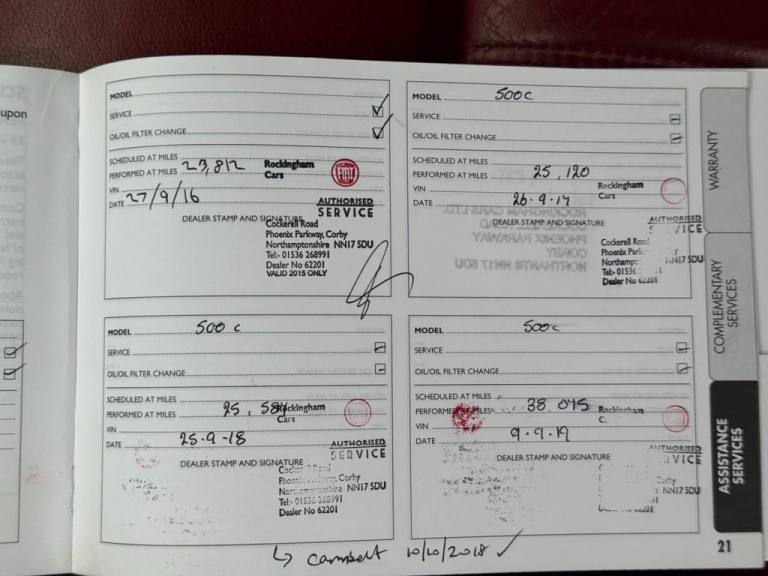 upon
MODEL
SERVICE
OIL/OIL FILTER CHANGE
SCHEDULED AT MILES
PERFORMED AT MILES 23,812
Rockingham
Cars
FIAT
VIN
DATE 27/9/16
AUTHORISED
SERVICE
DEALER STAMP AND SIGNATURE
Cockerell Road
Phoenix Parkway, Corby
Northamptonshire NN17 5DU
Tel:- 01536 268991
Dealer No 62201
VALID 2015 ONLY
MODEL 500c
SERVICE
OIL/OIL FILTER CHANGE
SCHEDULED AT MILES
PERFORMED AT MILES 25,120
VIN
Rockingham
Cars
DATE 26.9.17
AUTHORISED
DEALER STAMP AND SIGNATURE
VICE
Cockerell Road
Phoenix Park
Northamp NN17 5DU
Tel:- 01536
Dealer No 62201
MODEL 500c
SERVICE
OIL/OIL FILTER CHANGE
SCHEDULED AT MILES
PERFORMED AT MILES 25,584
Rockingham
Cars
VIN
DATE 25-9-18
AUTHORISED
SERVICE
DEALER STAMP AND SIGNATURE
Corby
NN17 5DU
Tel:- 01536 268991
Dealer No 62201
MODEL 500c
SERVICE
OIL/OIL FILTER CHANGE
SCHEDULED AT MILES
PERFORMED AT MILES 38,075
Rockingham
VIN
DATE 9.9.19
AUTHORISED
VICE
DEALER STAMP AND SIGNATURE
NN17 5DU
↳ cambelt 10/10/2018 ✓
WARRANTY
COMPLEMENTARY
SERVICES
ASSISTANCE
SERVICES
21